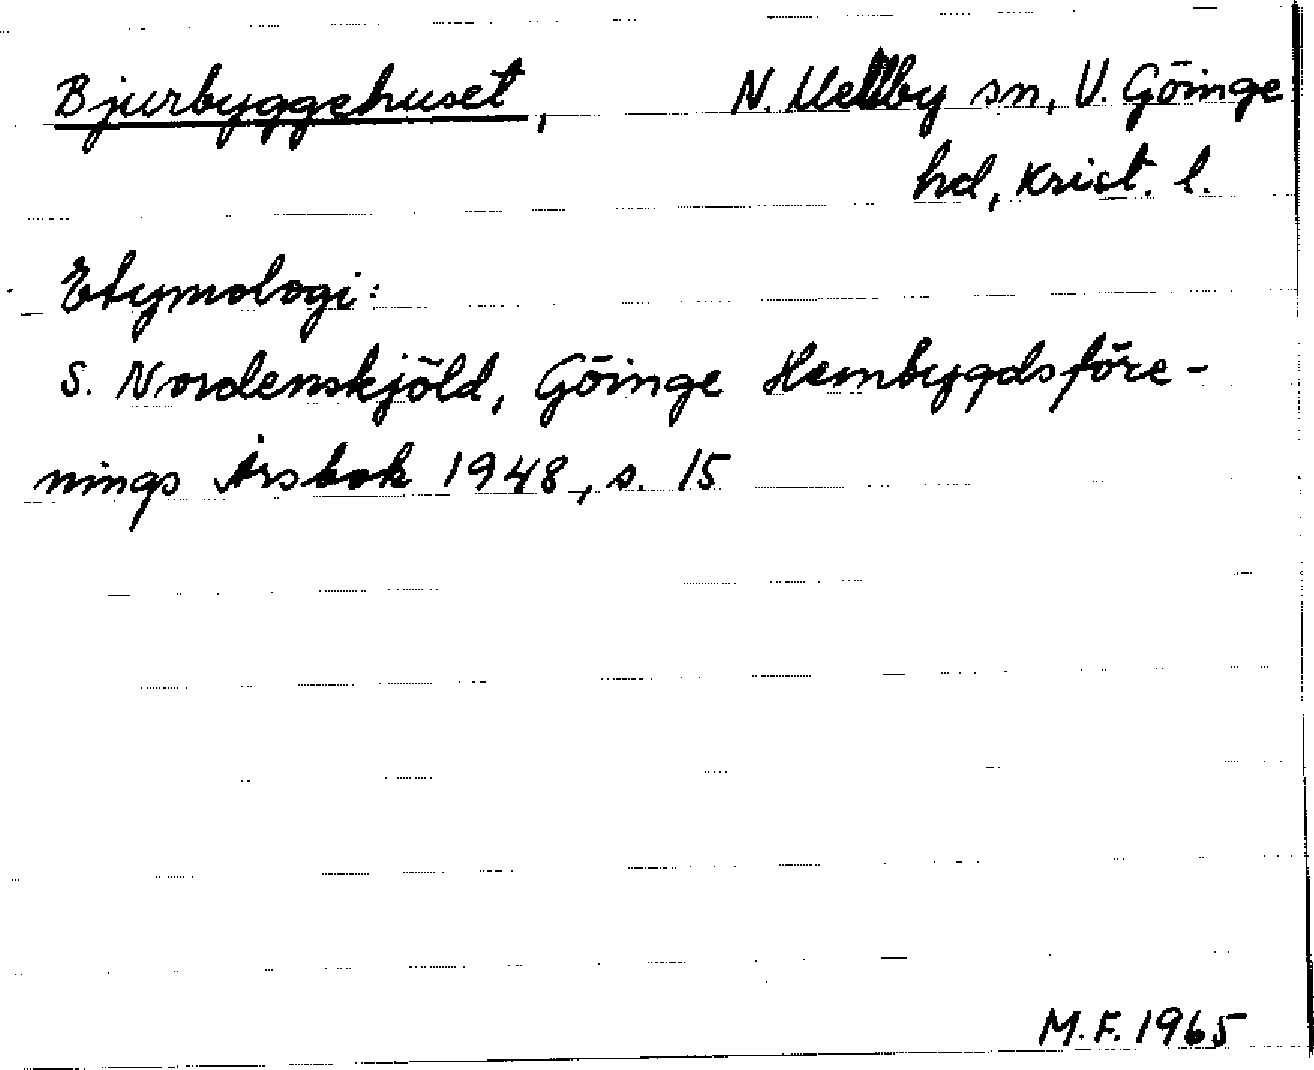 Bjurbyggehuset, N. Mellby sn, V. Göinge
hd, Krist. l.
Etymologi:
S. Nordenskjöld, Göinge Hembygdsföre-
nings Årsbok 1948, s. 15
M.F. 1965